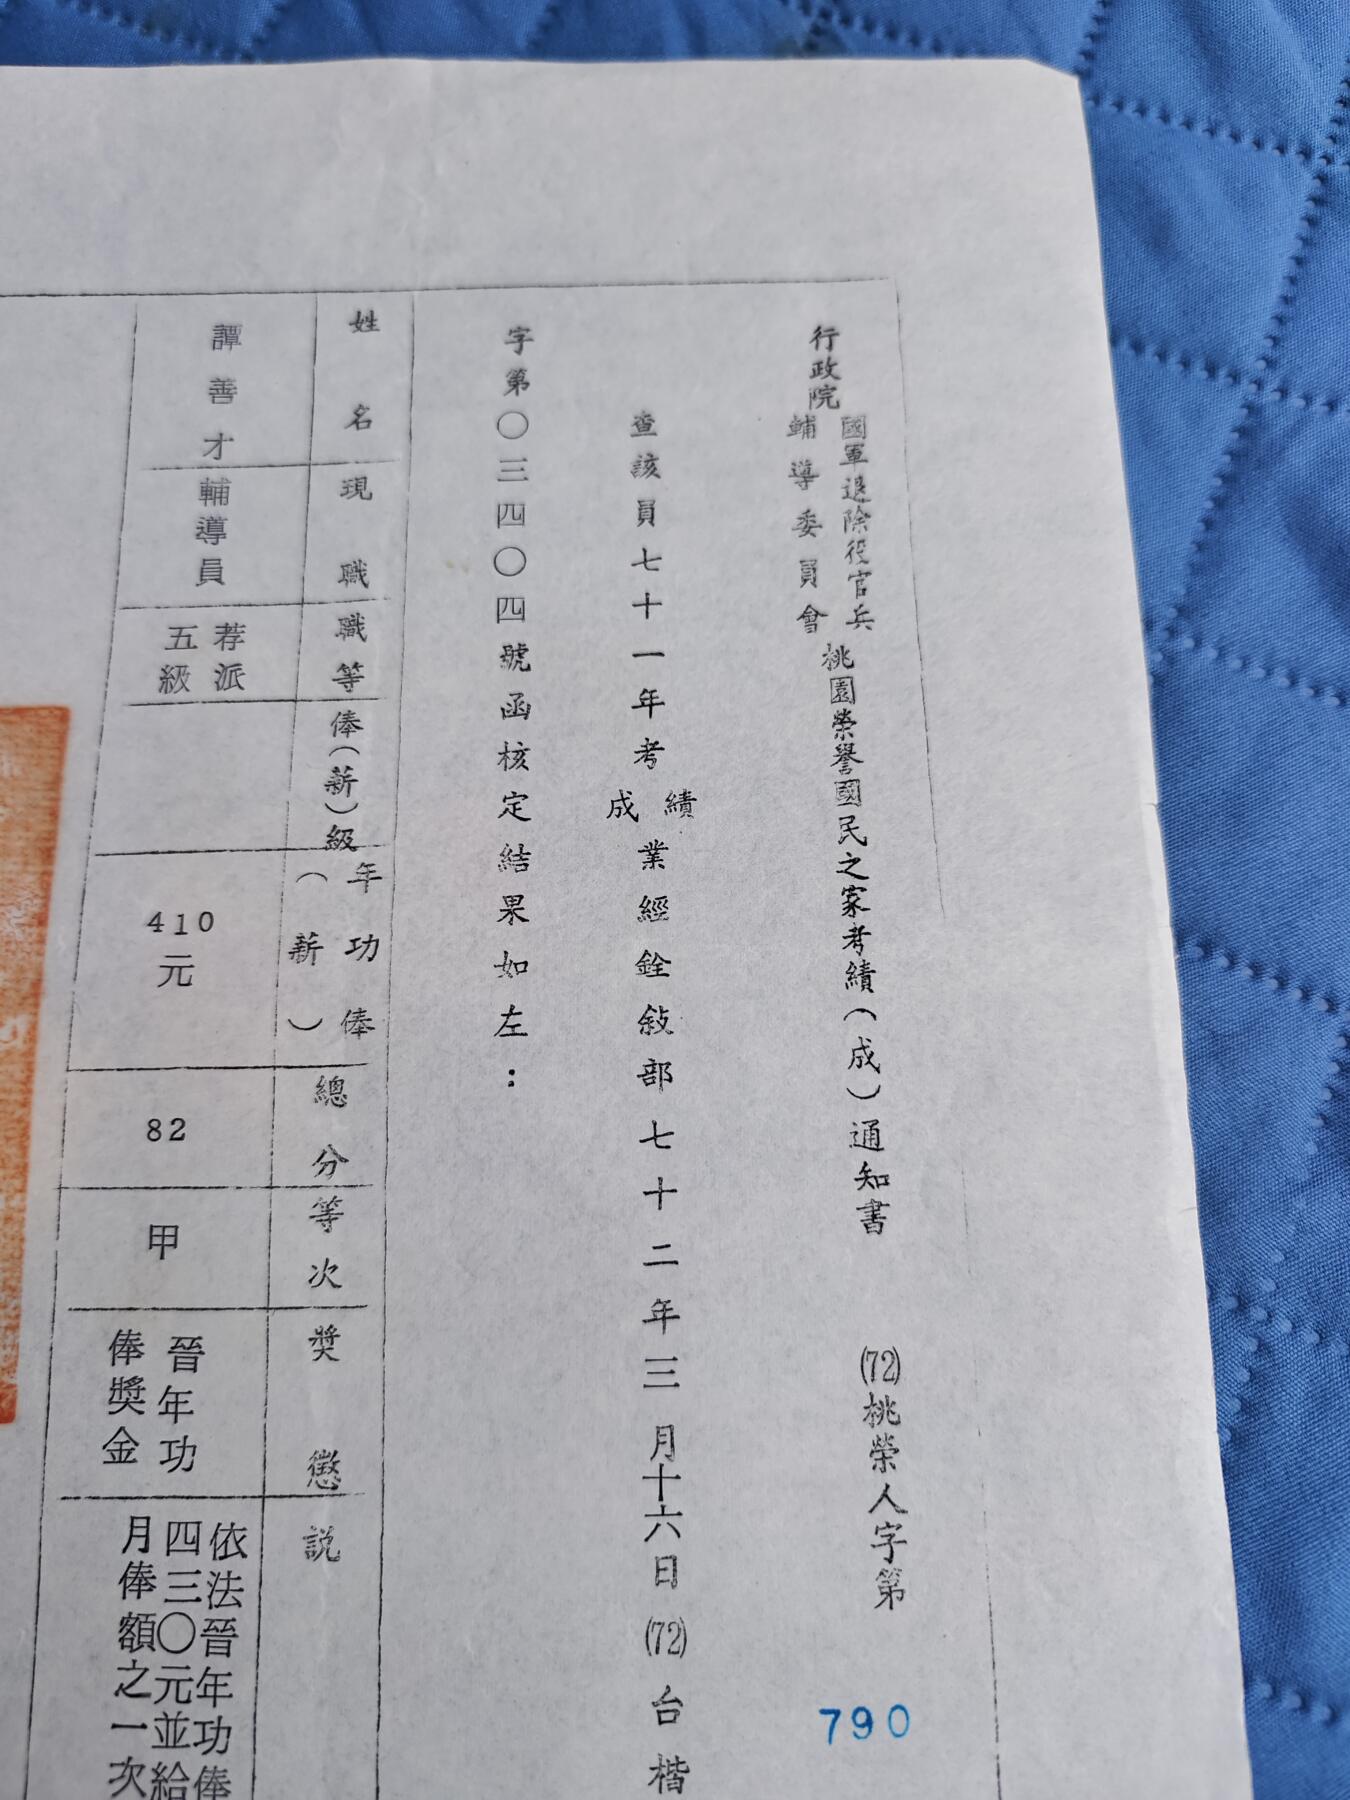 行政院國軍退除役官兵輔導委員會桃園榮譽國民之家考績(成)通知書 (72)桃榮人字第790
查該員七十一年考績成業經銓敍部七十二年三月十六日(72)台楷
字第〇三四〇四號函核定結果如左：
姓名 現職 職等 俸(薪)級 年功俸(薪) 總分 等次 奬懲 説
譚善才 輔導員 荐派五級 410元 82 甲 晉年功俸獎金 依法晉年功俸
四三〇元並給
月俸額之一次